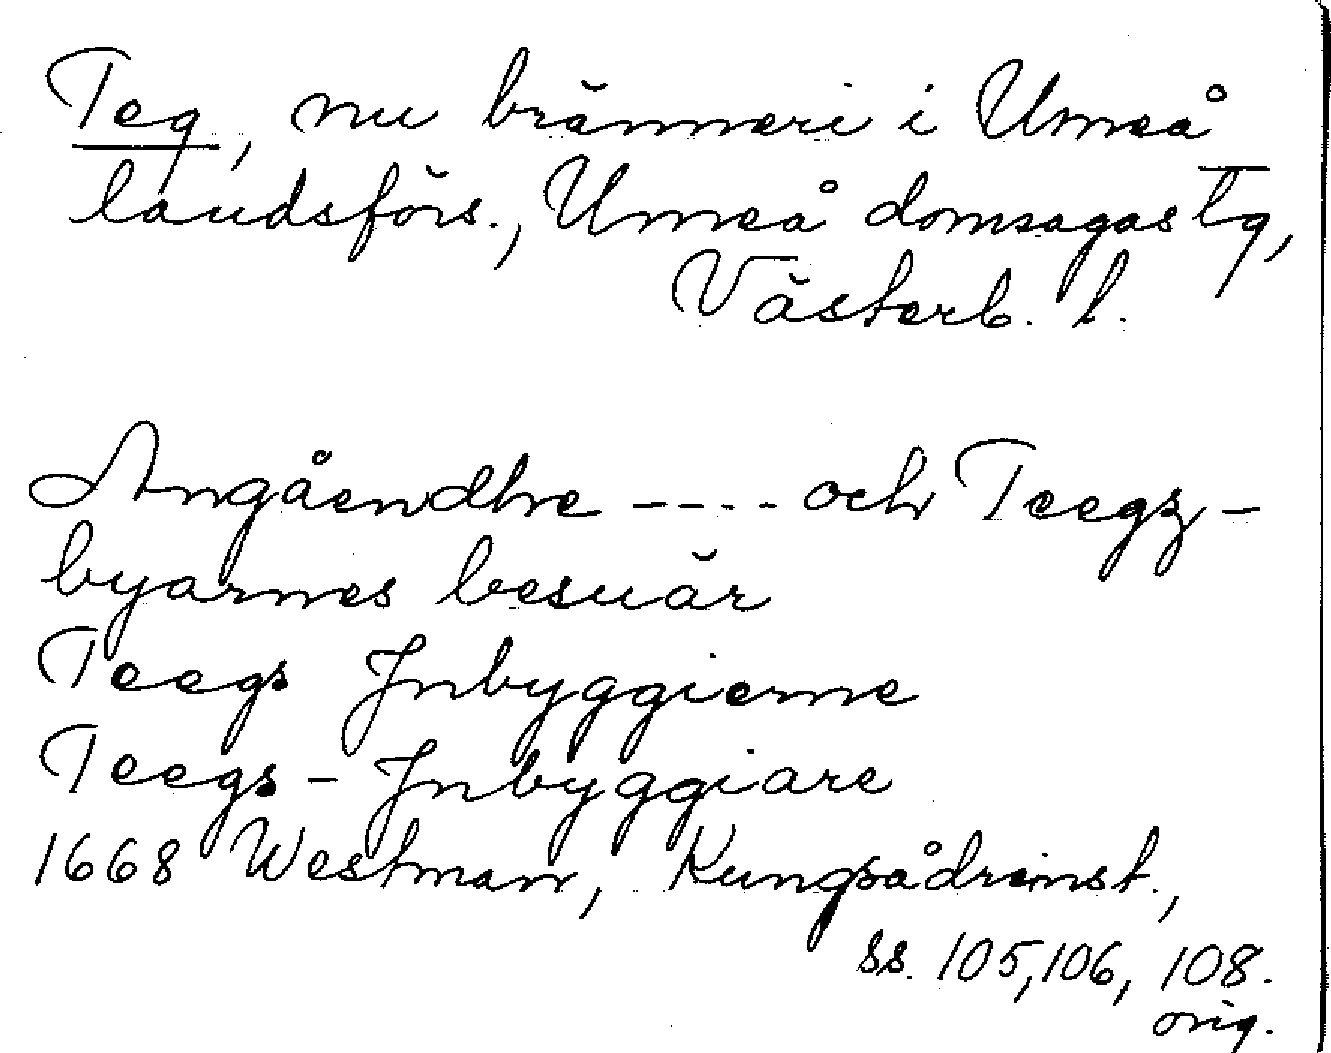 Teg, nu bränneri i Umeå
landsförs., Umeå domsagas tg,
Västerb. l.
Angåendhe ---- och Teegz-
byarnes besuär
Teegs Jnbyggierne
Teegs-Jnbyggiare
1668 Westman, Kungsådreinst.,
ss. 105, 106, 108.
orig.